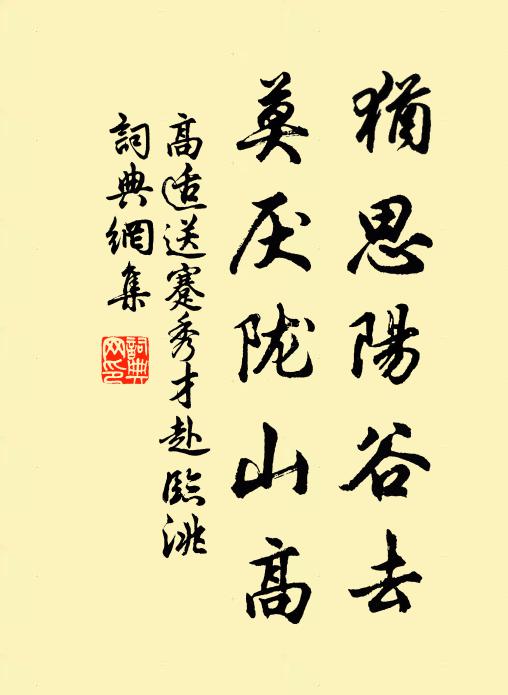 猶思陽谷去
莫厌陇山高
高适送蹇秀才赴臨洮
詞典網集
詞典网印